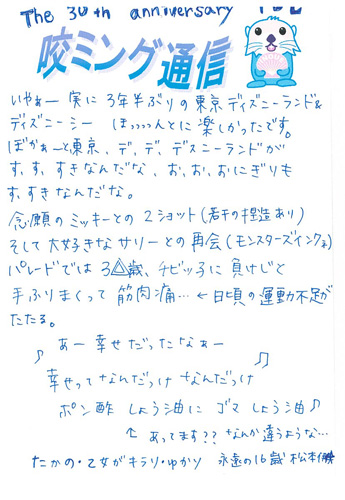 The 30th anniversary TDL
咬ミング通信
いやぁー 実に 3年半ぶりの東京ディズニーランド&
ディズニーシー ほっっっっんとに楽しかったです。
ぼかぁーと東京、デ、デ、デズニーランドが
す、す、すきなんだな、お、お、おにぎりも
す、すきなんだな。
念願のミッキーとの2ショット(若干の捏造あり)
そして大好きなサリーとの再会(モンスターズインクよ)
パレードでは 3△歳、チビッ子に負けじと
手ふりまくって 筋肉痛… ← 日頃の運動不足が
たたる。
♪ あー 幸せだったなぁー ♫
幸せって なんだっけ なんだっけ
ポン酢 しょう油に ゴマ しょう油♪
↑ あってます?? なんか違うような…
たかの・乙女がキラリ・ゆかり 永遠の16歳 松本